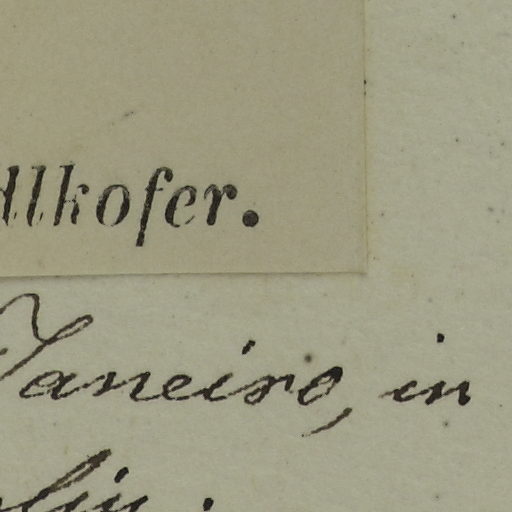 dlkofer.
Janeiro, in